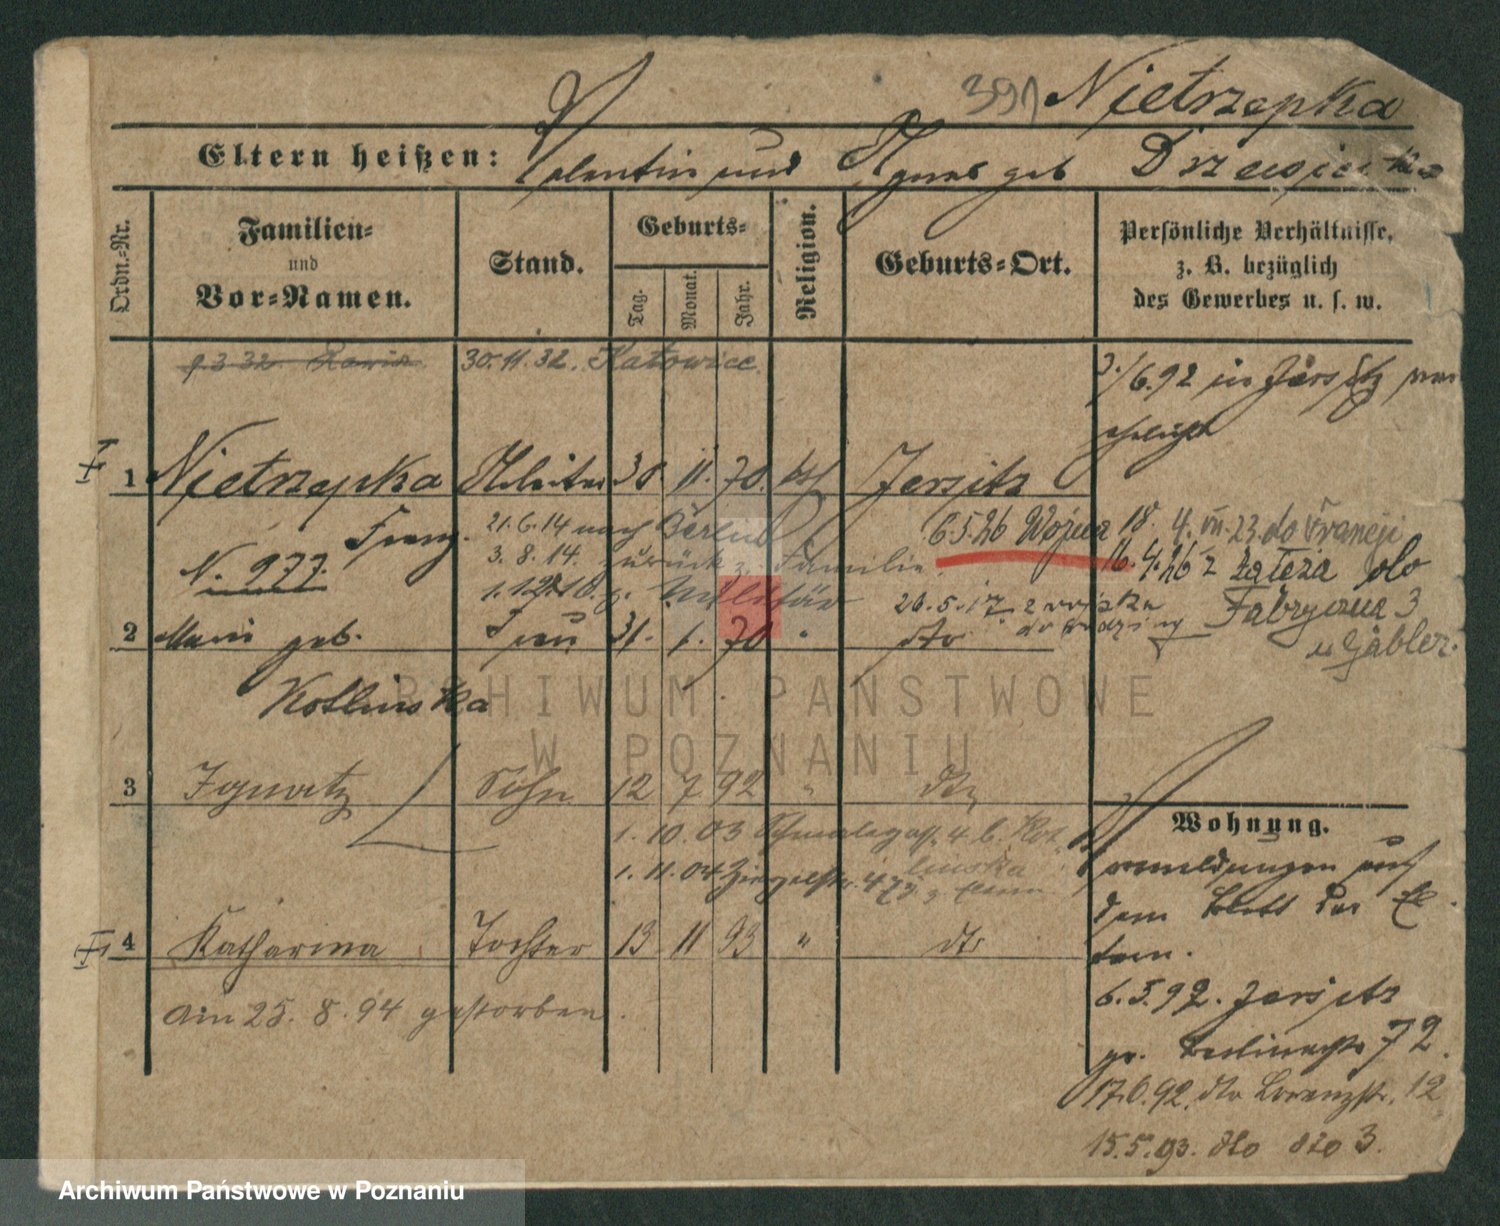 391 Nietrzepka
Eltern heißen: Valentin und Agnes geb
Ordn.-Nr.
Familien-
und
Vor-Namen.
Stand.
Geburts-
Tag.
Monat.
Jahr.
Religion.
Geburts-Ort.
Persönliche Verhältnisse,
z. B. bezüglich
des Gewerbes u. s. w.
9 3 32 30.11.32. Katowice.
3./6.92 in Jersitz
1 Nietrzepka Arbeiter 30. 11. 70. kath Jersitz
Franz.
21.6.14 nach Berlin
6.5.26 Wojna 18. 4. VII. 23. do Francji
3. 8. 14. zurück z. Familie.
16. 4. 26 z Łazęża do
N. 977.
Militär
26. 5. 17. z wojska
do rodziny
Fabryczna 3
u Gäbler.
2 Marie geb. Frau 31. 1. 70 " dto
Kotlinska
ARCHIWUM PAŃSTWOWE
W POZNANIU
3 Ignatz Sohn 12 7 92 " dto
1. 10. 03 4 b. Kot
linska
1. 11. 04 Ziegelstr.
4 Katharina Tochter 13 11 93 " dto
am 25. 8. 94 gestorben.
Wohnung.
Vormeldungen auf
dem Blatt der El
tern.
6. 5. 92. Jersitz
gr. Berlinerstr 72.
17.6.92. dto Lorenzstr. 12
15. 5. 93. dto dto 3.
Archiwum Państwowe w Poznaniu